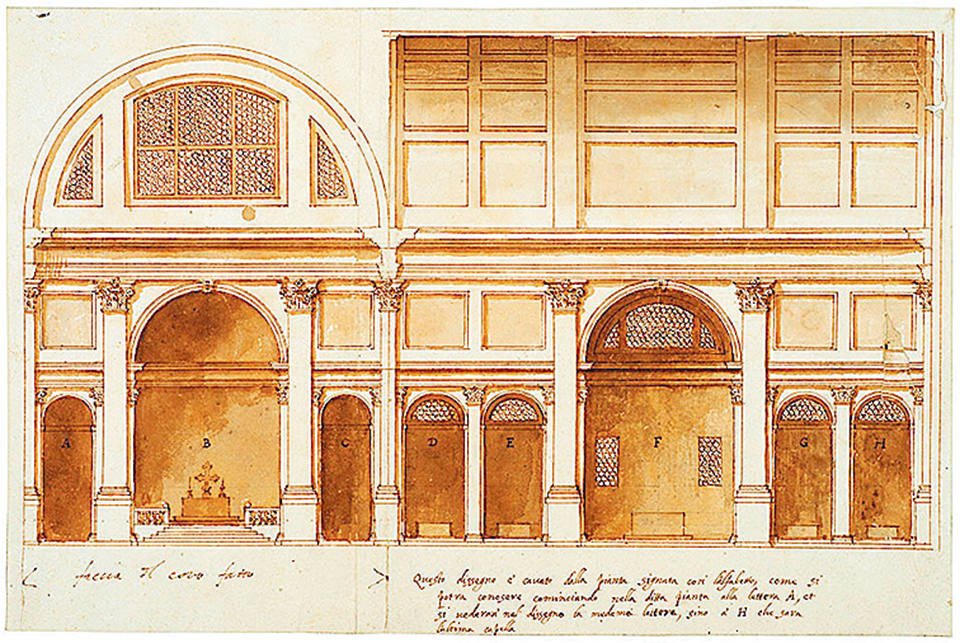 A
B
C
D
E
F
G
H
faccia il coro fatto
Questo dissegno è cavato dalla pianta signata con l'alfabeto, come si
potra conoscere cominciando nella ditta pianta alla lettera A, et
si vederà nel dissegno la medeme lettere, sino à H che sara
l'ultima capella